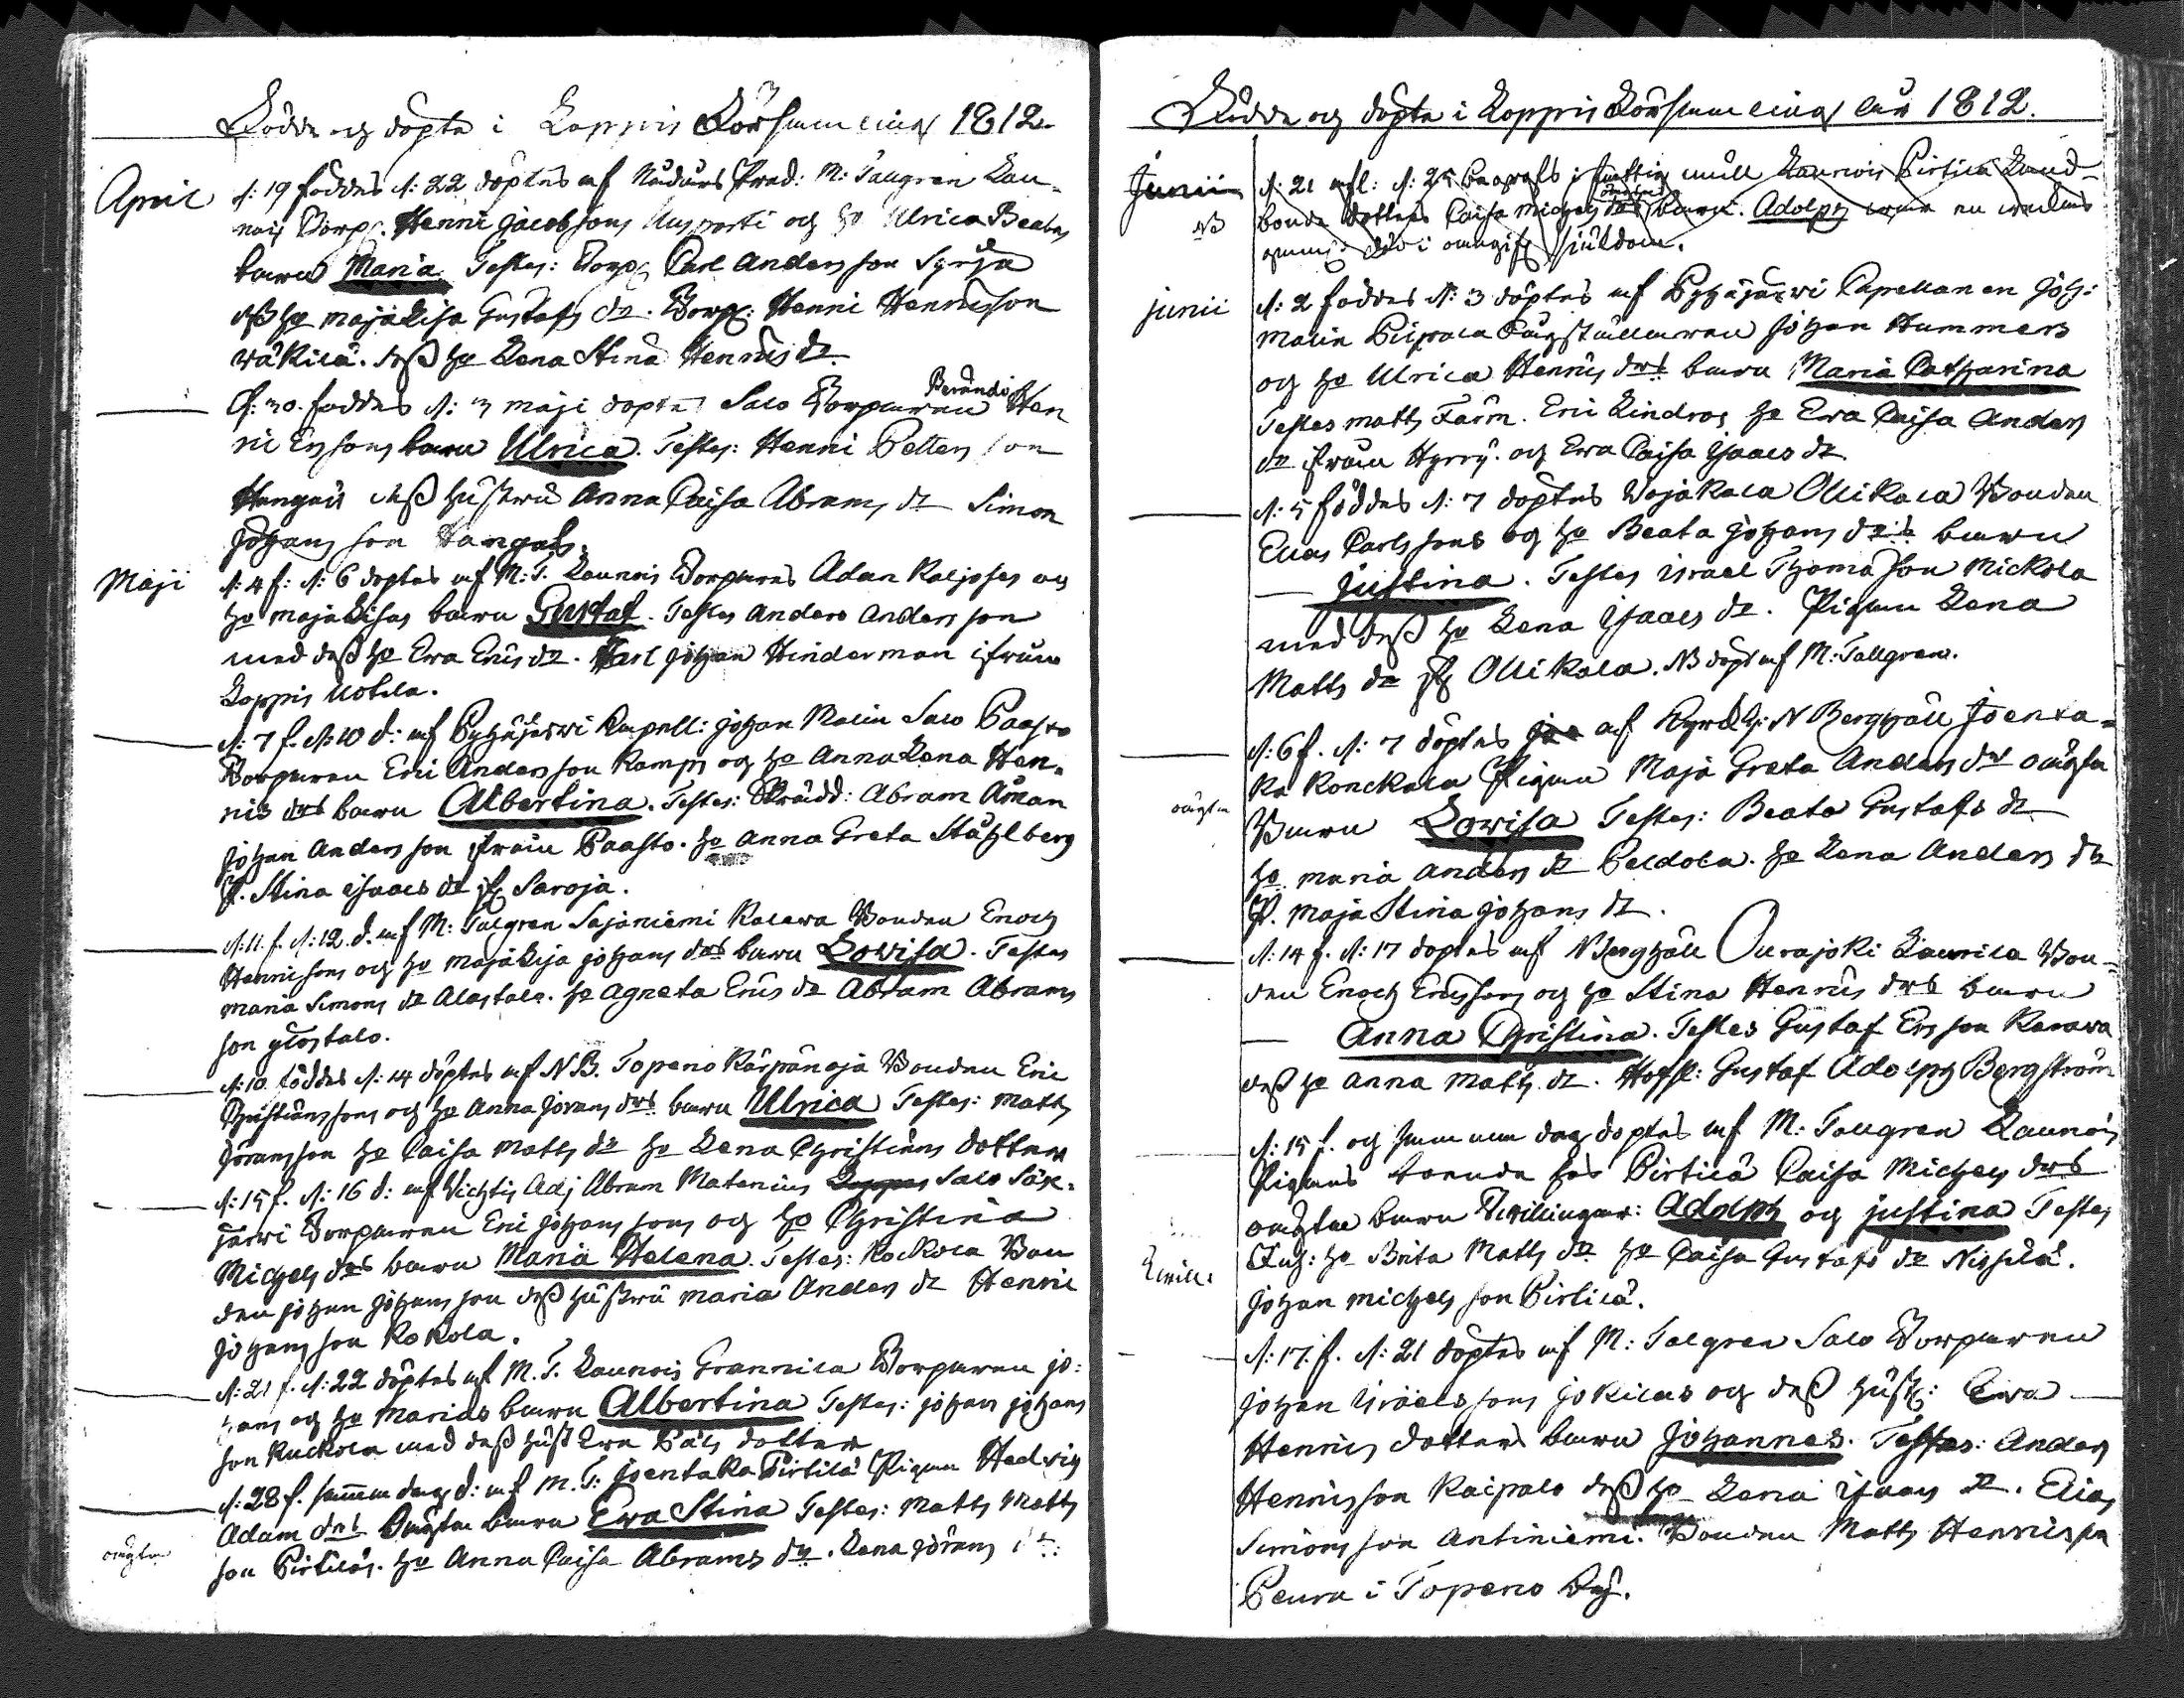 Födde og döpte i Loppis Församling 1812.
April
d: 19 föddes d: 22 döptes af Nådårs Pred: M: Tallgren Lau-
nois Torp: Henric Jacobssons Uusporti og h: Ulrica Beatas
barn Maria. Testes: Torp: Carl Andersson Syrjä
dess ho Maja Lisa Gustafs dr. Torp: Henric Henricsson
Wäkilä. dess ho Lena Stina Henrics dr.
d: 30. föddes d: 3 Maji döptes Salo Torparen Perändö Hen
ric Erssons barn Ulrica. Testes: Henric Petters son
Hangais dess hustru Anna Caisa Abrams dr Simon
Johans son Hangais.
Maji
d: 4 f: d: 6 döptes af M: T. Launois Torparens Adam Kaljoses og
ho Maja Lisas barn Gustaf. Testes Anders Anders son
med dess ho Ewa Erics dr. Karl Johan Hinderman ifrån
Loppis Uotila.
d: 7 f. d: 10 d: af Pyhäjerwi Capell: Johan Malin Salo Paasto
Torparen Eric Andersson Kamps og ho Anna Lena Hen-
rics drs barn Albertina. Testes: Skrädd: Abram Åman
Johan Anders son ifrån Paasto. ho Anna Greta Ståhlberg
P. Stina Isaacs dr if Saroja.
d: 11. f. d: 12. d. af M: Talgren Sajaniemi Kalewa Bonden Enoch
Henricsons og ho Maja Lisa Johans drs barn Lovisa. Testes
Maria Simons dr Alastalo. ho Agneta Erics dr Abram Abrams
son Ylostalo.
d: 10 föddes d: 14 döptes af N B. Topeno Kärpänoja Bonden Eric
Christianssons og ho Anna Jörans drs barn Ulrica Testes: Matts
Jöransson ho Caisa Matts dr ho Lena Christians dotter
d: 15 f. d: 16 d: af Vichtis Adj Abram Matenius Salo Säx-
järwi Torparen Eric Johans sons og ho Christina
Michels drs barn Maria Helena. Testes: Kockola Bon
den Johan Johans son dess hustru Maria Anders dr Henric
Johans son Kokola.
d: 21 f. d: 22 döptes af M. T. Launois Grannila Torparen Jo:
hans og ho Marias barn Albertina Testes: Johan Johans
son Kuckola med dess hust Ewa Påls dotter
d: 28 f. samma dag d: af M. T: Joentaka Pirtilä Pigan Hedvig
Adam drs oägta barn Ewa Stina Testes: Matts Matts
son Pirtiläs. ho Anna Caisa Abrams dr. Lena Jörans dr:
oägta
Födde og döpte i Loppis Församling år 1812.
Junii
NB
d: 21 d: 25 Launois Pirtilä Land-
bonde dotters Caisa Michels drs oägta barn. Adolph war en weckas
död i ålder.
Junii
d: 2 föddes d: 3 döptes af Pyhäjärwi Capellanen Joh:
Malin Piipala Johan Hammers
og ho Ulrica Henrics drs barn Maria Catharina
Testes Matts Färm. Eric Lindros ho Ewa Caisa Anders
dr ifrån Hyrry. og Ewa Caisa Isaacs dr
d: 5 föddes d: 7 döptes Wojakala Ollikala Bonden
Elias Carlssons og ho Beata Johans drs barn
Justina. Testes Israel Thoma son Mickola
med dess ho Lena Isaacs dr. Pigan Lena
Matts dr if Ollikala. NB döpt af M: Tallgren.
d: 6 f. d: 7 döptes af Kyrckh: N Berghäll Joenta-
ka Ronckala Pigan Maja Greta Anders drs oägta
Barn Lovisa Testes: Beata Gustafs dr
ho. Maria Anders dr Peldola. ho Lena Anders dr
P. Maja Stina Johans dr.
oägta
d: 14 f. d: 17 döptes af N Berghäll Ourajoki Laurila Bon-
den Enoch Ericssons og ho Stina Henrics drs barn
Anna Christina. Testes Gustaf Ersson Karawa
dess ho Anna Matts dr. Gustaf Adolph Bergström
d: 15 f. og samma dag döptes af M: Tallgren Launois
Pigans boende hos Pirtilä Caisa Michels drs
oägta barn Twillingar: Adolph og Justina Testes
ho Brita Matts dr ho Caisa Gustafs dr Nissilä.
Johan Michels son Pirtilä.
Twill:
d: 17. f. d: 21 döptes af M: Talgren Salo Torparen
Johan Israelssons Jokilas og dess hust: Ewa
Henrics dotters barn Johannes. Testes: Anders
Henrics son Kaipalo dess ho Lena Isaacs dr. Elias
Simons son Antiniemi. Bonden Matts Henricsson
Peura i Topeno By.